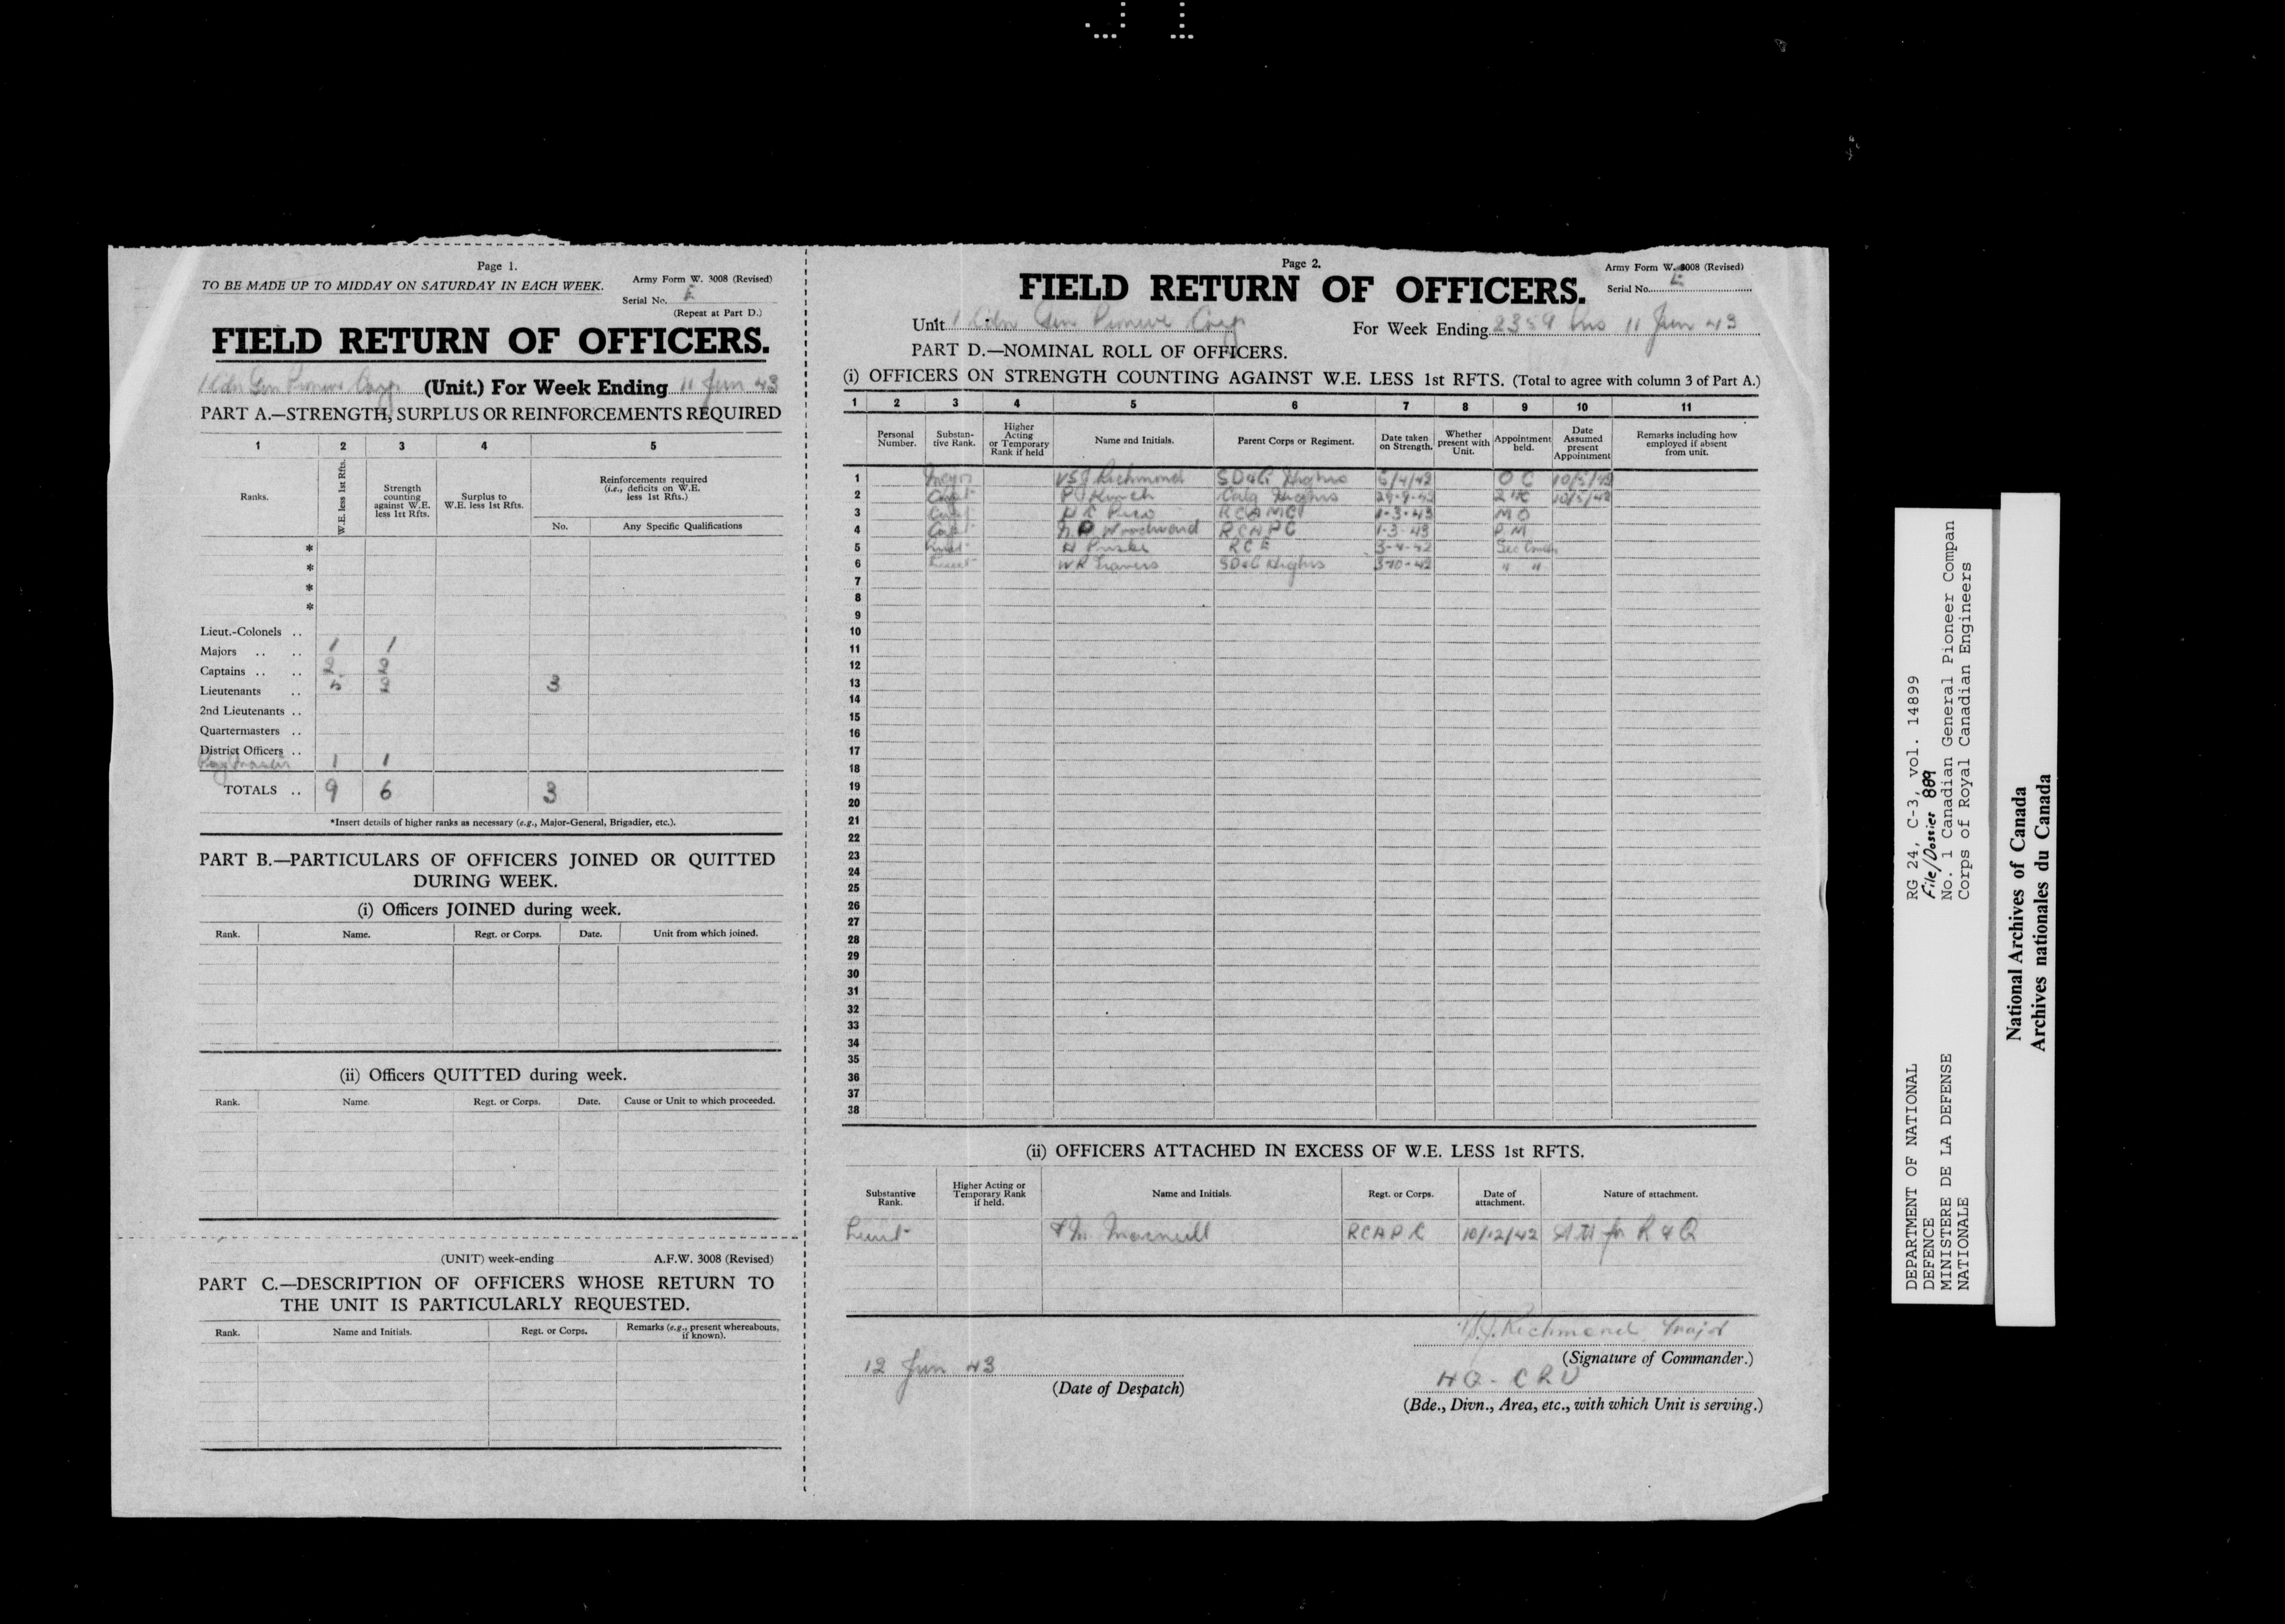 Page 1.
TO BE MADE UP TO MIDDAY ON SATURDAY IN EACH WEEK.
Army Form W. 3008 (Revised)
Serial No. E
(Repeat at Part D.)
FIELD RETURN OF OFFICERS.
1 Cdn Gen Pioneer Coy (Unit.) For Week Ending 11 Jun 43
PART A.—STRENGTH, SURPLUS OR REINFORCEMENTS REQUIRED
1 2 3 4 5
Ranks.
W.E. less 1st Rfts.
Strength counting against W.E. less 1st Rfts.
Surplus to W.E. less 1st Rfts.
Reinforcements required (i.e., deficits on W.E. less 1st Rfts.)
No. Any Specific Qualifications
*
*
*
*
Lieut.-Colonels ..
Majors .. .. 1 1
Captains .. .. 2 2
Lieutenants .. 5 2 3
2nd Lieutenants ..
Quartermasters ..
District Officers ..
Paymaster 1 1
TOTALS .. 9 6 3
*Insert details of higher ranks as necessary (e.g., Major-General, Brigadier, etc.).
PART B.—PARTICULARS OF OFFICERS JOINED OR QUITTED
DURING WEEK.
(i) Officers JOINED during week.
Rank. Name. Regt. or Corps. Date. Unit from which joined.
(ii) Officers QUITTED during week.
Rank. Name. Regt. or Corps. Date. Cause or Unit to which proceeded.
(UNIT) week-ending A.F.W. 3008 (Revised)
PART C.—DESCRIPTION OF OFFICERS WHOSE RETURN TO
THE UNIT IS PARTICULARLY REQUESTED.
Rank. Name and Initials. Regt. or Corps. Remarks (e.g., present whereabouts, if known).
Page 2.
Army Form W. 3008 (Revised)
FIELD RETURN OF OFFICERS.
Serial No. E
Unit 1 Cdn Gen Pioneer Coy For Week Ending 2359 hrs 11 Jun 43
PART D.—NOMINAL ROLL OF OFFICERS.
(i) OFFICERS ON STRENGTH COUNTING AGAINST W.E. LESS 1st RFTS. (Total to agree with column 3 of Part A.)
1 2 3 4 5 6 7 8 9 10 11
Personal Number.
Substan-tive Rank.
Higher Acting or Temporary Rank if held
Name and Initials.
Parent Corps or Regiment.
Date taken on Strength.
Whether present with Unit.
Appointment held.
Date Assumed present Appointment
Remarks including how employed if absent from unit.
1 Major VSJ Richmond SD&G Highrs 6/4/42 O C 10/5/43
2 Capt PJ Calg Highrs 2 i/c 10/5/43
3 Capt RCAMC 1-3-43 M O
4 Capt Woodward RCAPC 1-3-43 P M
5 Lieut H RCE 3-4-42 Sec
6 Lieut WR Travers SD&G Highrs 3-10-42 " "
7
8
9
10
11
12
13
14
15
16
17
18
19
20
21
22
23
24
25
26
27
28
29
30
31
32
33
34
35
36
37
38
(ii) OFFICERS ATTACHED IN EXCESS OF W.E. LESS 1st RFTS.
Substantive Rank.
Higher Acting or Temporary Rank if held.
Name and Initials.
Regt. or Corps.
Date of attachment.
Nature of attachment.
Lieut RCAPC 10/12/42 Att for R & Q
V.S.J. Richmond Major
(Signature of Commander.)
12 Jun 43
(Date of Despatch)
HQ - CRU
(Bde., Divn., Area, etc., with which Unit is serving.)
DEPARTMENT OF NATIONAL
DEFENCE
MINISTERE DE LA DEFENSE
NATIONALE
RG 24, C-3, vol. 14899
File/Dossier 889
No. 1 Canadian General Pioneer Compan
Corps of Royal Canadian Engineers
National Archives of Canada
Archives nationales du Canada